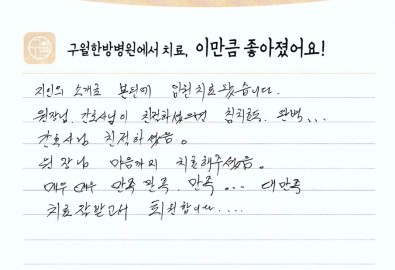 구월한방병원에서 치료, 이만큼 좋아졌어요!
지인의 소개로 본원에 입원치료 왔습니다.
원장님, 간호사님이 친절하셨으며 침치료도 완벽...
간호사님 친절하셨음.
원장님 마음까지 치료해주셨음.
매우 매우 만족 만족. 만족... 대만족
치료 잘받고서 퇴원합니다....